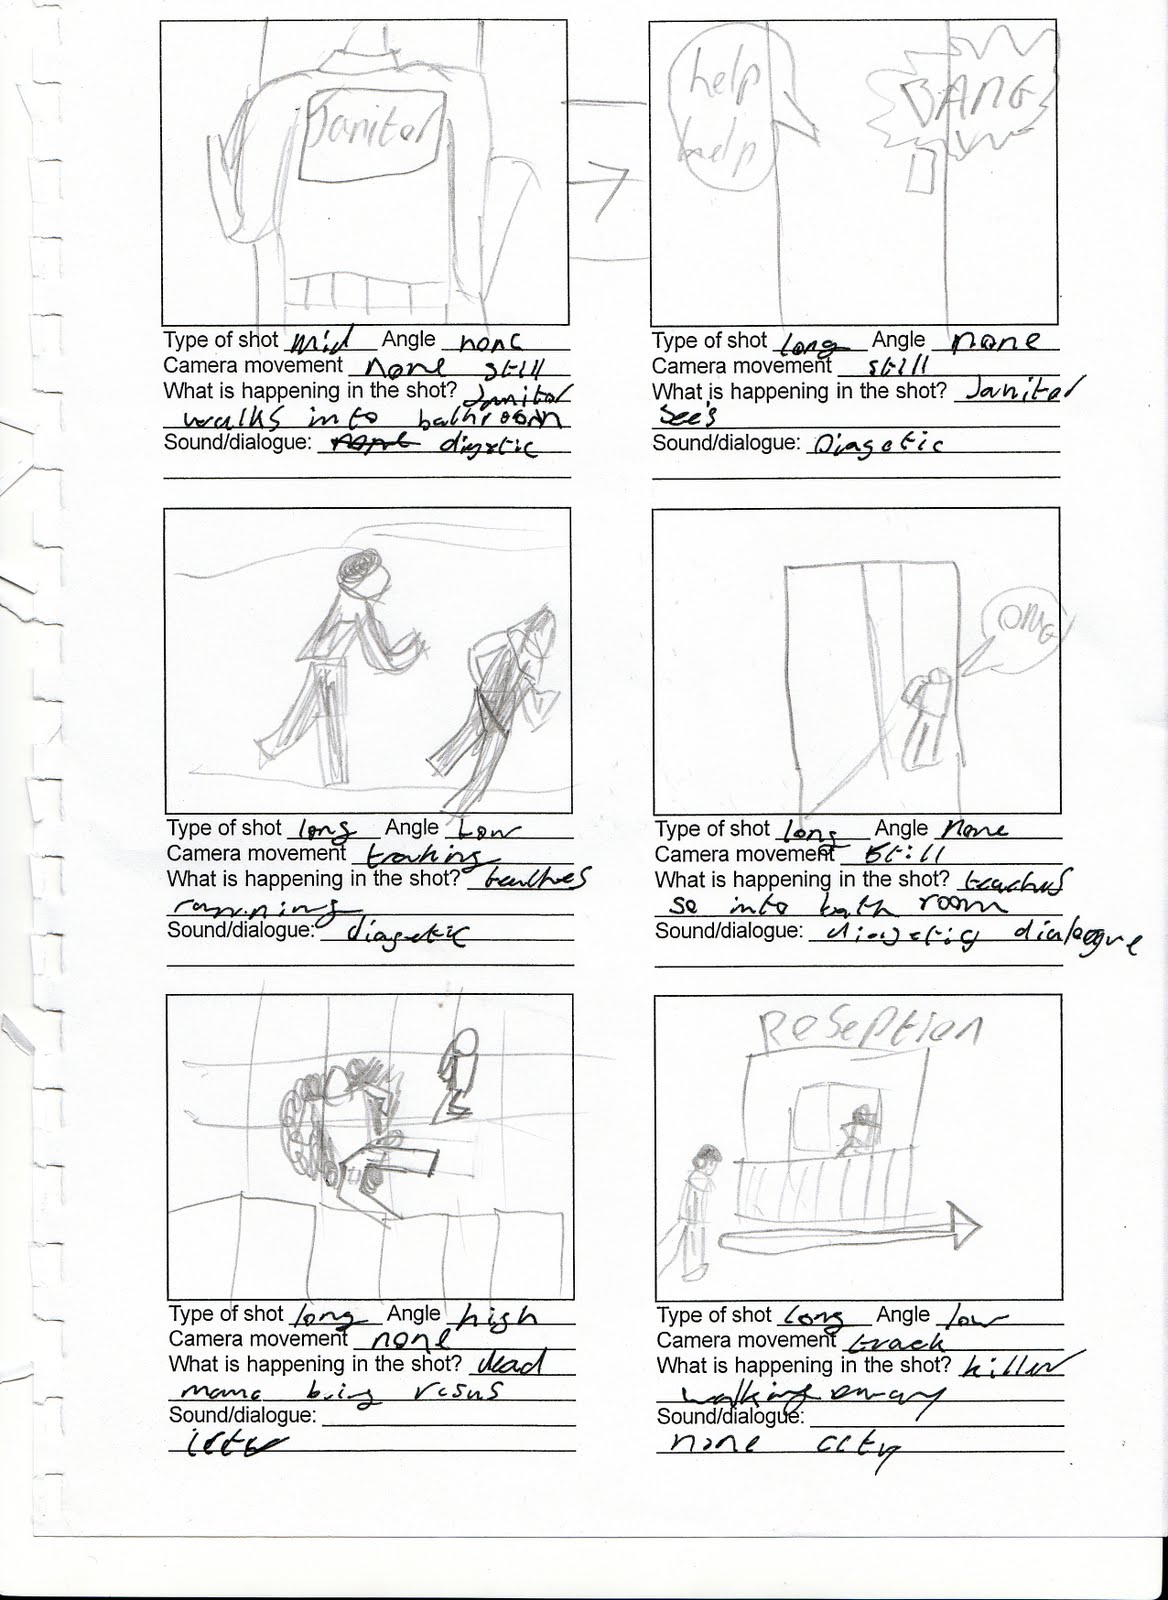 Janitor
Type of shot mid Angle none
Camera movement none still
What is happening in the shot? Janitor
walks into bathroom
Sound/dialogue: digetic
help
help
BANG
Type of shot long Angle none
Camera movement still
What is happening in the shot? Janitor
see's
Sound/dialogue: Diagetic
Type of shot long Angle Low
Camera movement
What is happening in the shot?
Sound/dialogue: diagetic
OMG
Type of shot long Angle None
Camera movement Still
What is happening in the shot?
into bath room
Sound/dialogue: dialogue
Type of shot long Angle high
Camera movement none
What is happening in the shot? dead
Sound/dialogue:
ReSePtion
Type of shot long Angle low
Camera movement track
What is happening in the shot? killer
walking away
Sound/dialogue:
none